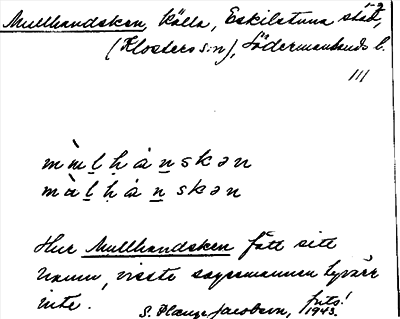 Mullhandsken, källa, Eskilstuna stad,
(Klosters s:n), Södermanlands l.
III
mùl̠ḥáṉskən
màl̠ḥáṉskən
Hur Mullhandsken fått sitt
namn, visste sagesmannen tyvärr
inte.
S. Plauge Jacobson, 1943.